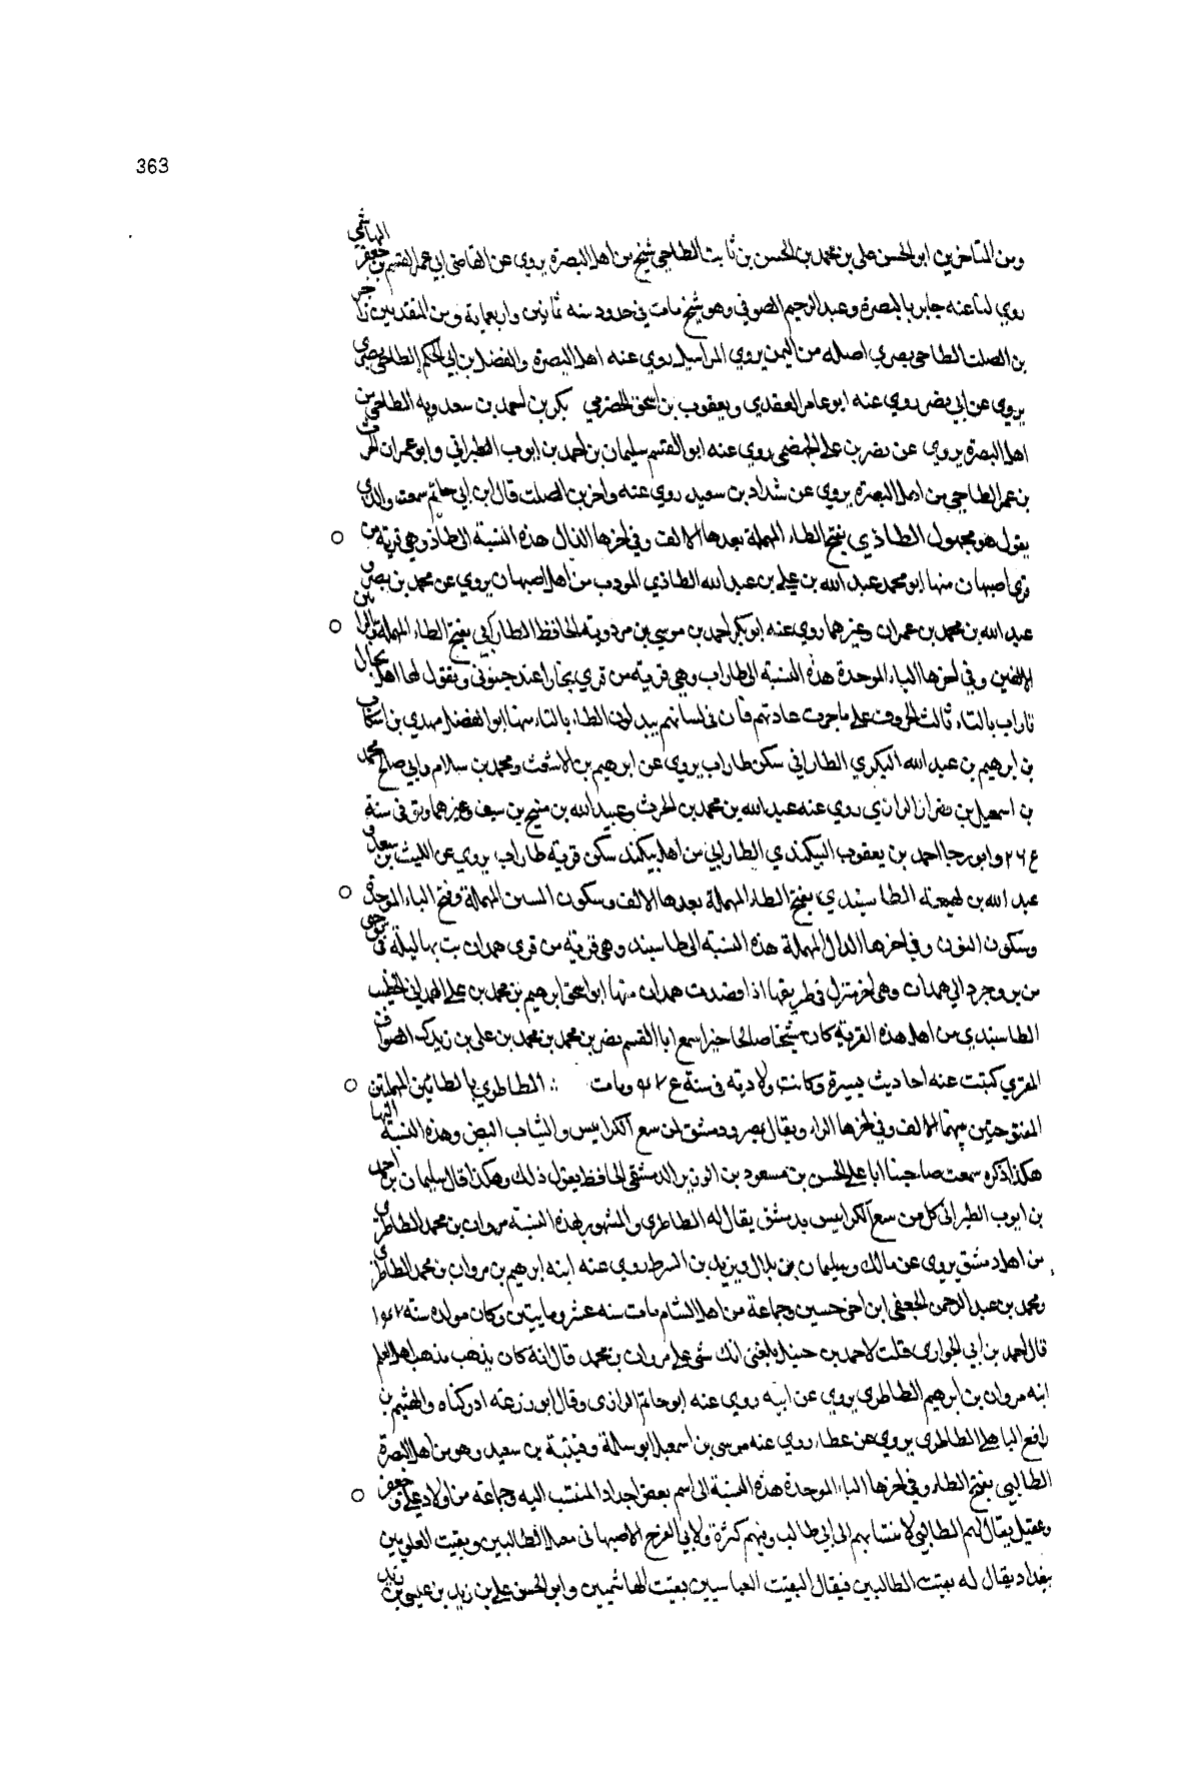 363
ومن المتاخرين ابو الحسن على بن محمد بن الحسن بن ثابت الطاحي شيخ من اهل البصرة يروي عن القاضي ابي عمر القسم بن جعفر الهاشمي
روي لنا عنه جابر بالبصرة وعبد الرحيم الصوفي وهو شيخ مات في حدود سنه ثمانين واربعماية ومن المتقدمين
بن الصلت الطاحي بصري اصله من اليمن يروي المراسيل روي عنه اهل البصرة والفضل بن ابي الحكم الطاحي بصري
يروي عن ابي نضر روي عنه ابو عامر العقدي ويعقوب بن اسحق الحضرمي بكر بن احمد بن سعدويه الطاحي من
اهل البصرة يروي عن نصر بن علي الجهضمي روي عنه ابو القسم سليمان بن احمد بن ايوب الطبراني وابو عمران
بن عمر الطاحي من اهل البصرة يروي عن شداد بن سعيد روي عنه واخر بن الصلت قال ابن ابي حاتم سمعت والدي
يقول هو مجهول الطاذي بفتح الطاء المهملة بعدها الالف وفي اخرها الذال هذه النسبة الى طاذ وهي قرية من
قرى اصبهان منها ابو محمد عبد الله بن علي بن عبد الله الطاذي المودب من اهل اصبهان يروي عن محمد بن نصر و
عبد الله بن محمد بن عمران وغيرهما روي عنه ابو بكر احمد بن موسي بن مردوية الحافظ الطارابي بفتح الطاء المهملة والرا بين
الالفين وفي اخرها الباء الموحدة هذه النسبة الى طاراب وهي قرية من قري بخارا عند خنبون ويقول لها اهل بخارا
تاراب بالتاء ثالث الحروف على ما جرت عادتهم فان في لسانهم يبدلون الطاء بالتاء منها ابو الفضل مهدي بن اسكاب
بن ابرهيم بن عبد الله البكري الطارابي سكن طاراب يروي عن ابرهيم بن الاشعث ومحمد بن سلام وابي صالح محمد
بن اسمعيل بن ضرار الرازي روي عنه عبد الله بن محمد بن الحرث وعبيد الله بن منيح بن سيف وغيرهما وتوفي سنة
٢٦٤ وابو رجا احمد بن يعقوب البيكندي الطارابي من اهل بيكند سكن قرية طاراب يروي عن الليث بن سعد و
عبد الله بن لهيعة الطاسبندي بفتح الطاء المهملة بعدها الالف وسكون السين المهملة وفتح الباء الموحدة
وسكون النون وفي اخرها الدال المهملة هذه النسبة الى طاسبند وهي قرية من قرى همدان بت بها ليلة في توجهي
من بروجرد الي همدان وهي اخر منزل في طريقها اذا قصدت همدان منها ابو اسحق ابرهيم بن محمد بن علي الهمداني الخطيب
الطاسبندي من اهل هذه القرية كان شيخا صالحا خيرا سمع ابا القسم نصر بن محمد بن محمد بن على بن زيرك الصواف
المقري كتبت عنه احاديث يسيرة وكانت ولادته في سنة ومات الطاطري بالطائين المهملتين
المفتوحتين بينهما الالف وفي اخرها الراء ويقال بمصر ودمشق لمن يبيع الكرابيس والثياب البيض وهذه النسبة اليها
هكذا ذكره سمعت صاحبنا ابا علي الحسن بن مسعود بن الوزير الدمشقي الحافظ يقول ذلك وهكذا قال سليمان بن احمد
بن ايوب الطبراني كل من يبيع الكرابيس بدمشق يقال له الطاطري والمشهور بهذه النسبة مروان بن محمد الطاطري
من اهل دمشق يروى عن مالك وسليمان بن بلال ويزيد بن السمط روي عنه ابنه ابرهيم بن مروان بن محمد الطاطري
ومحمد بن عبد الرحمن الجعفي ابن اخي حسين وجماعة من اهل الشام مات سنه عشر ومايتين وكان مولده سنة
قال احمد بن ابي الحواري قلت لاحمد بن حنبل بلغني انك تثني علي مروان بن محمد قال انه كان يذهب مذهب اهل العلم
ابنه مروان بن ابرهيم الطاطري يروي عن ابيه روي عنه ابو حاتم الرازي وقال ابو زرعة ادركناه والهيثم بن
رافع الباهلي الطاطري يروي عن عطاء روي عنه موسى بن اسمعيل ابو سلمة وقتيبة بن سعيد وهو من اهل البصرة
الطالبي بفتح الطاء وفي اخرها الباء الموحدة هذه النسبة الى اسم بعض اجداد المنتسب اليه وجماعة من اولاد علي وجعفر
وعقيل يقال لهم الطالبي لانتسابهم الى ابي طالب وفيهم كثرة ولابي الفرج الاصبهاني مقاتل الطالبيين ونقيب العلويين
ببغداد يقال له نقيب الطالبيين فيقال لنقيب العباسيين نقيب الهاشميين وابو الحسن علي بن زيد بن عيسى بن زيد